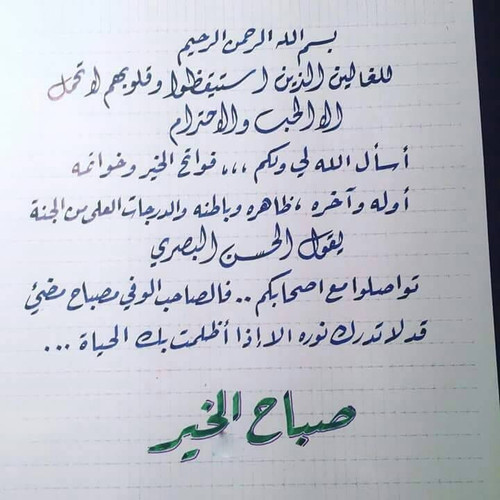 بسم الله الرحمن الرحيم
للغالين الذين استيقظوا وقلوبهم لا تحمل
الا الحب والاحترام
أسأل الله لي ولكم ،،، فواتح الخير وخواتمه
أوله وآخره ، ظاهره وباطنه والدرجات العلى من الجنة
يقول الحسن البصري
تواصلوا مع اصحابكم .. فالصاحب الوفي مصباح مضيئ
قد لا تدرك نوره الا إذا أظلمت بك الحياة ...
صباح الخير